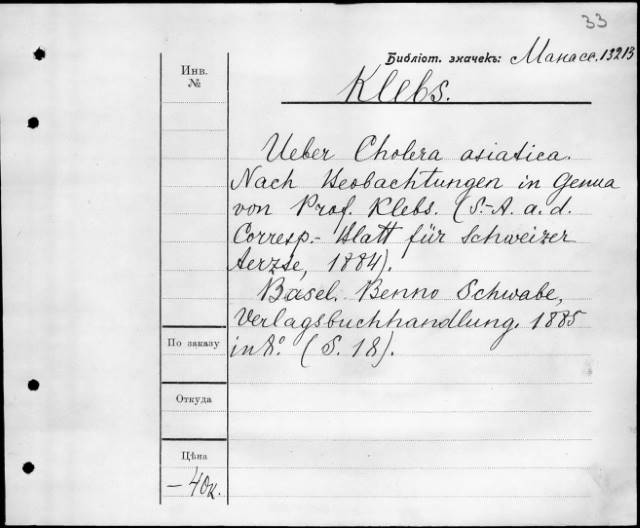 33
Библiот. значекъ: Манасс. 13213
Инв.
№
Klebs.
Ueber Cholera asiatica.
Nach Beobachtungen in Genua
von Prof. Klebs. (S.-A. a. d.
Corresp.- Blatt für Schweizer
Aerzte, 1884).
Basel. Benno Schwabe,
Verlagsbuchhandlung. 1885
in 8°. (S. 18).
По заказу
Откуда
Цѣна
— 40к.